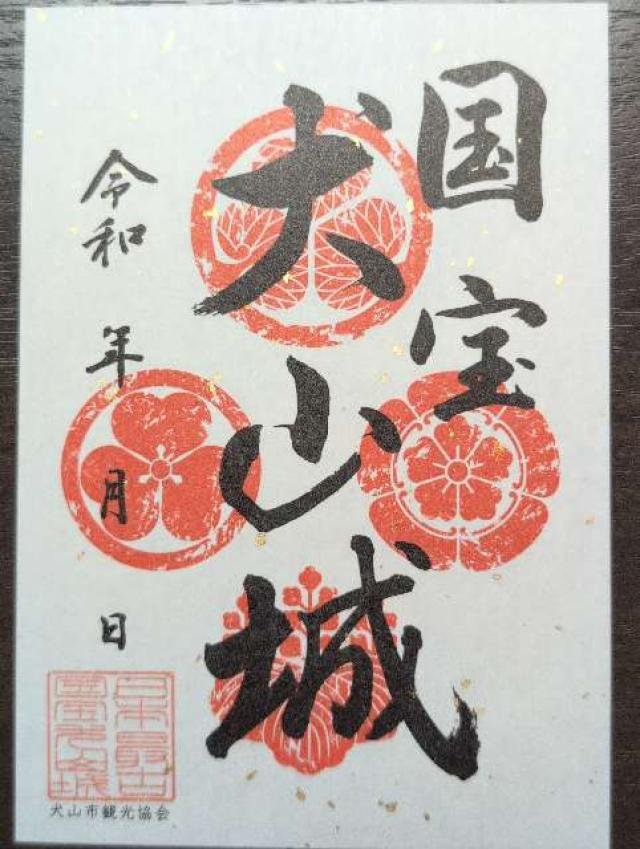 国宝
犬山城
令和 年 月 日
日本最古
犬山市観光協会